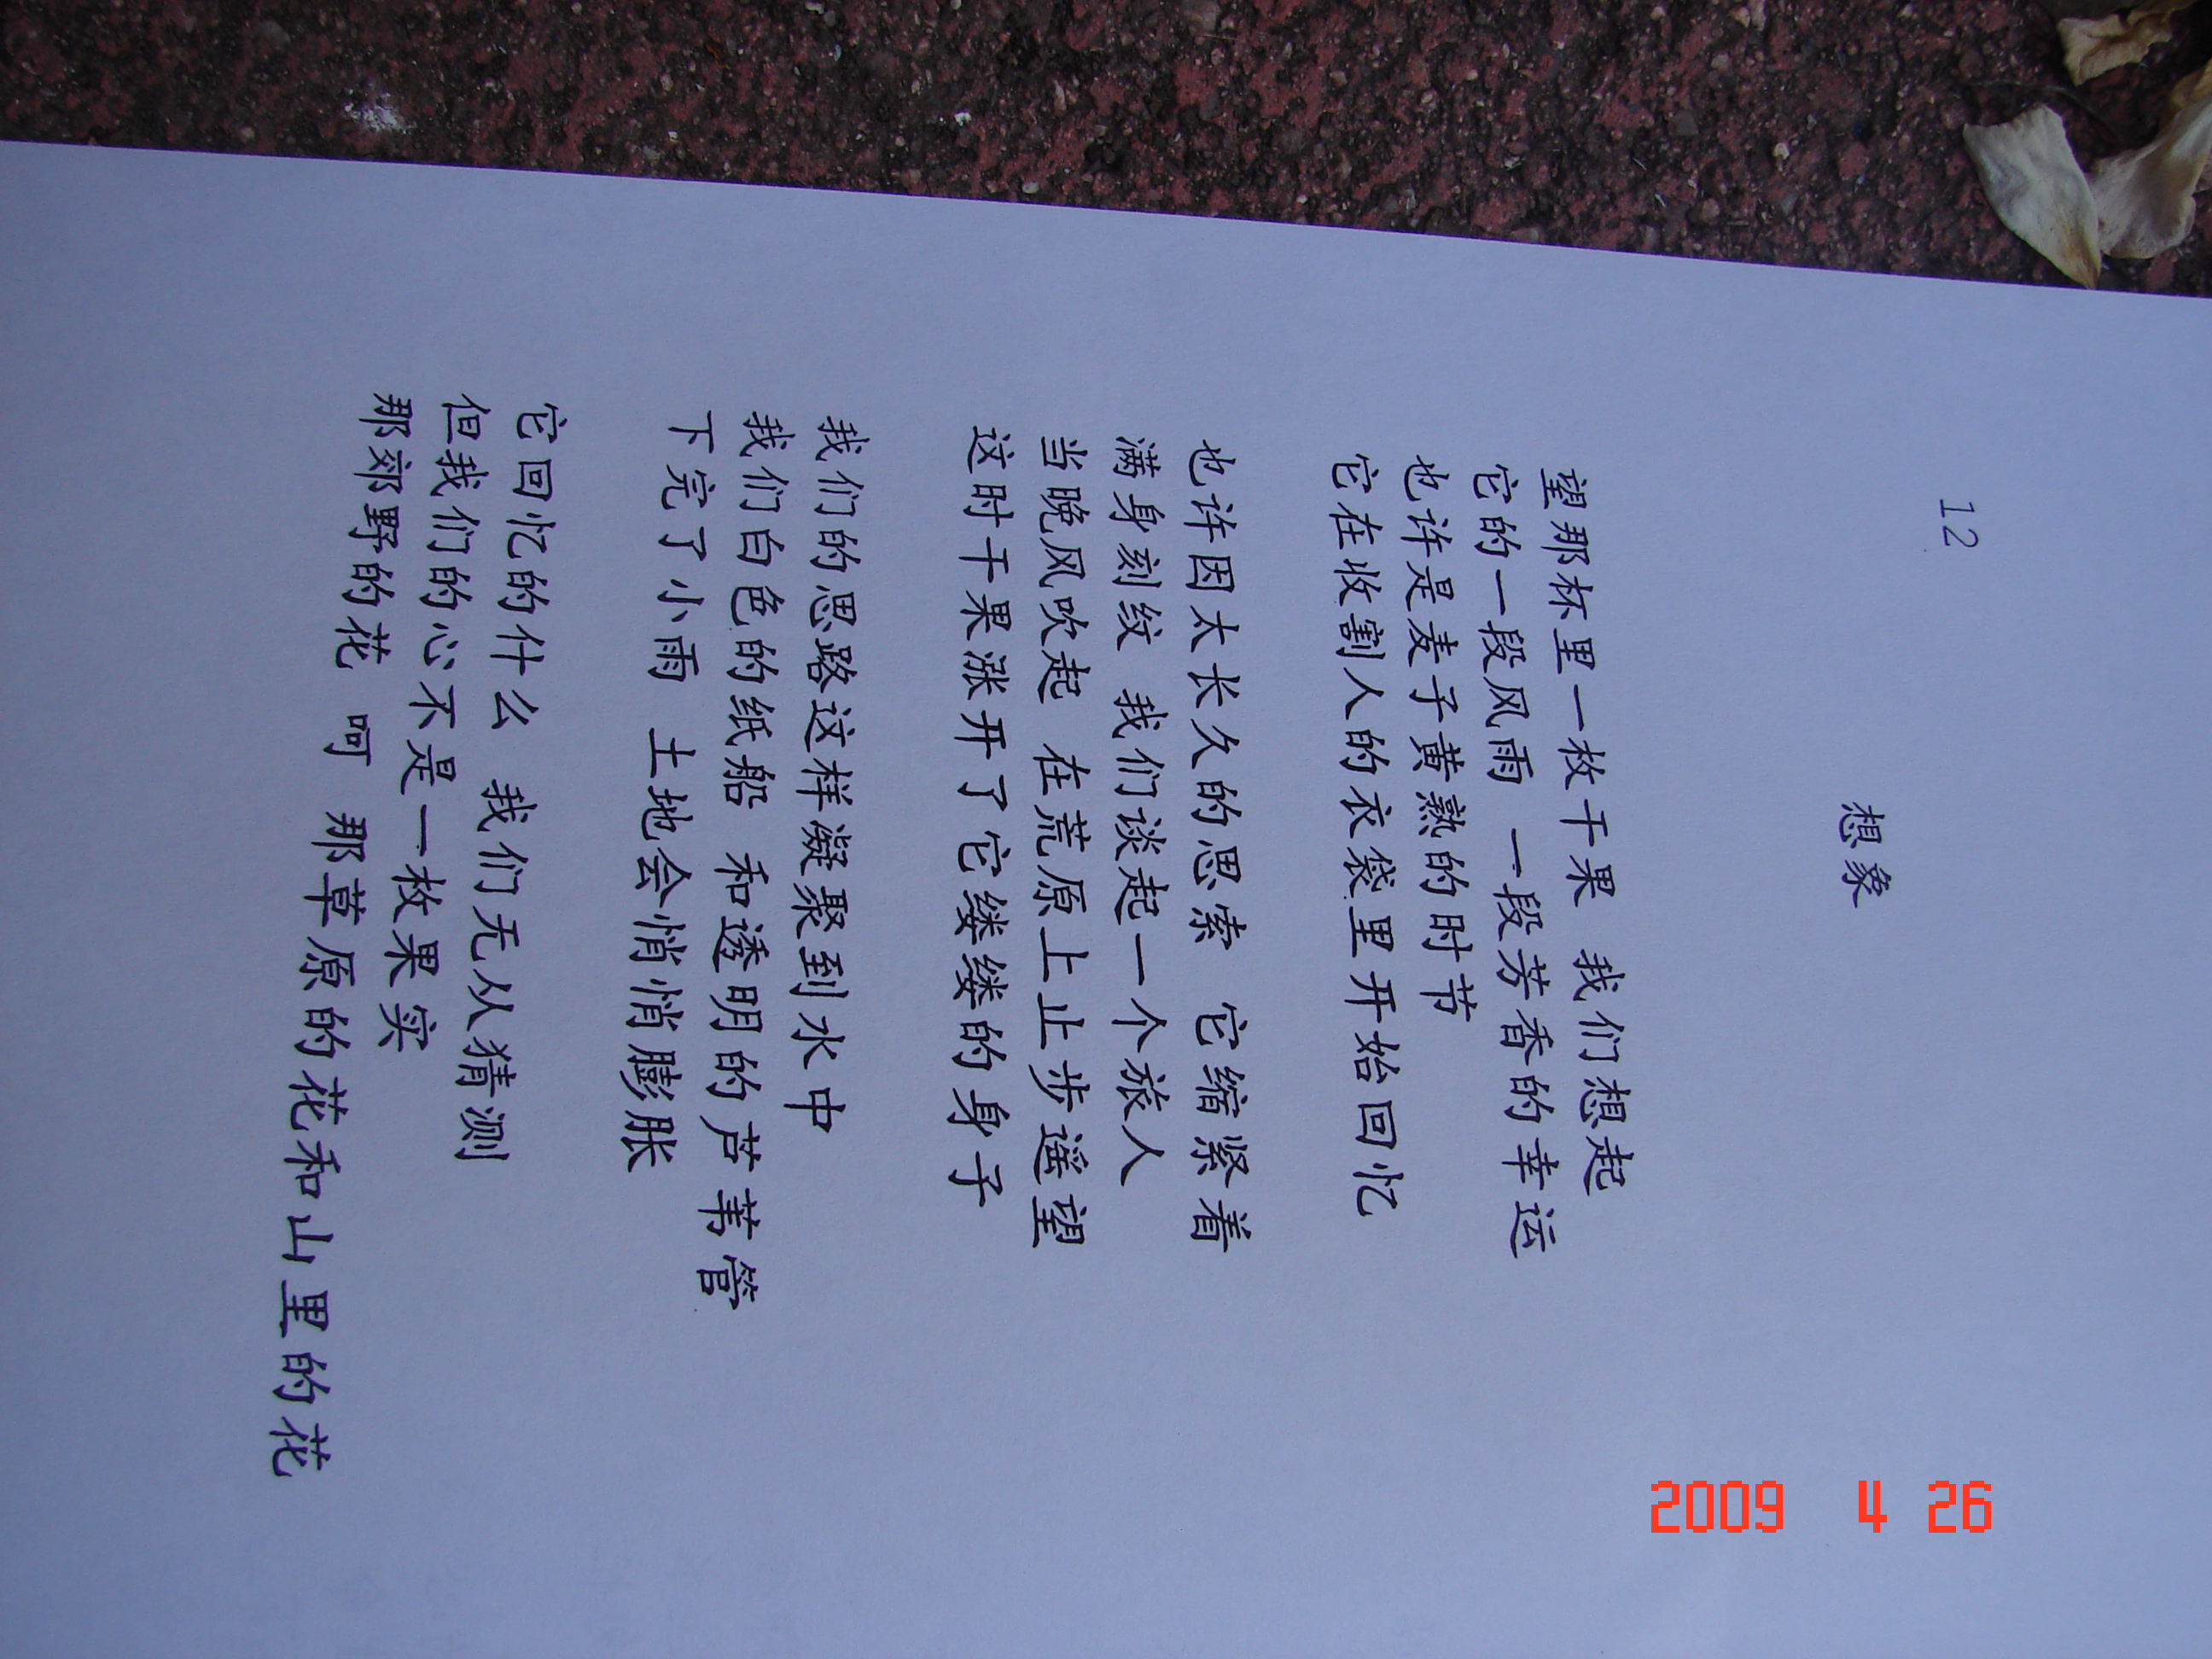 12
想象
望那杯里一枚干果 我们想起
它的一段风雨 一段芳香的幸运
也许是麦子黄熟的时节
它在收割人的衣袋里开始回忆
也许因太长久的思索 它缩紧着
满身刻纹 我们谈起一个旅人
当晚风吹起 在荒原上止步遥望
这时干果涨开了它缕缕的身子
我们的思路这样凝聚到水中
我们白色的纸船 和透明的芦苇管
下完了小雨 土地会悄悄膨胀
它回忆的什么 我们无从猜测
但我们的心不是一枚果实
那郊野的花 呵 那草原的花和山里的花
2009 4 26